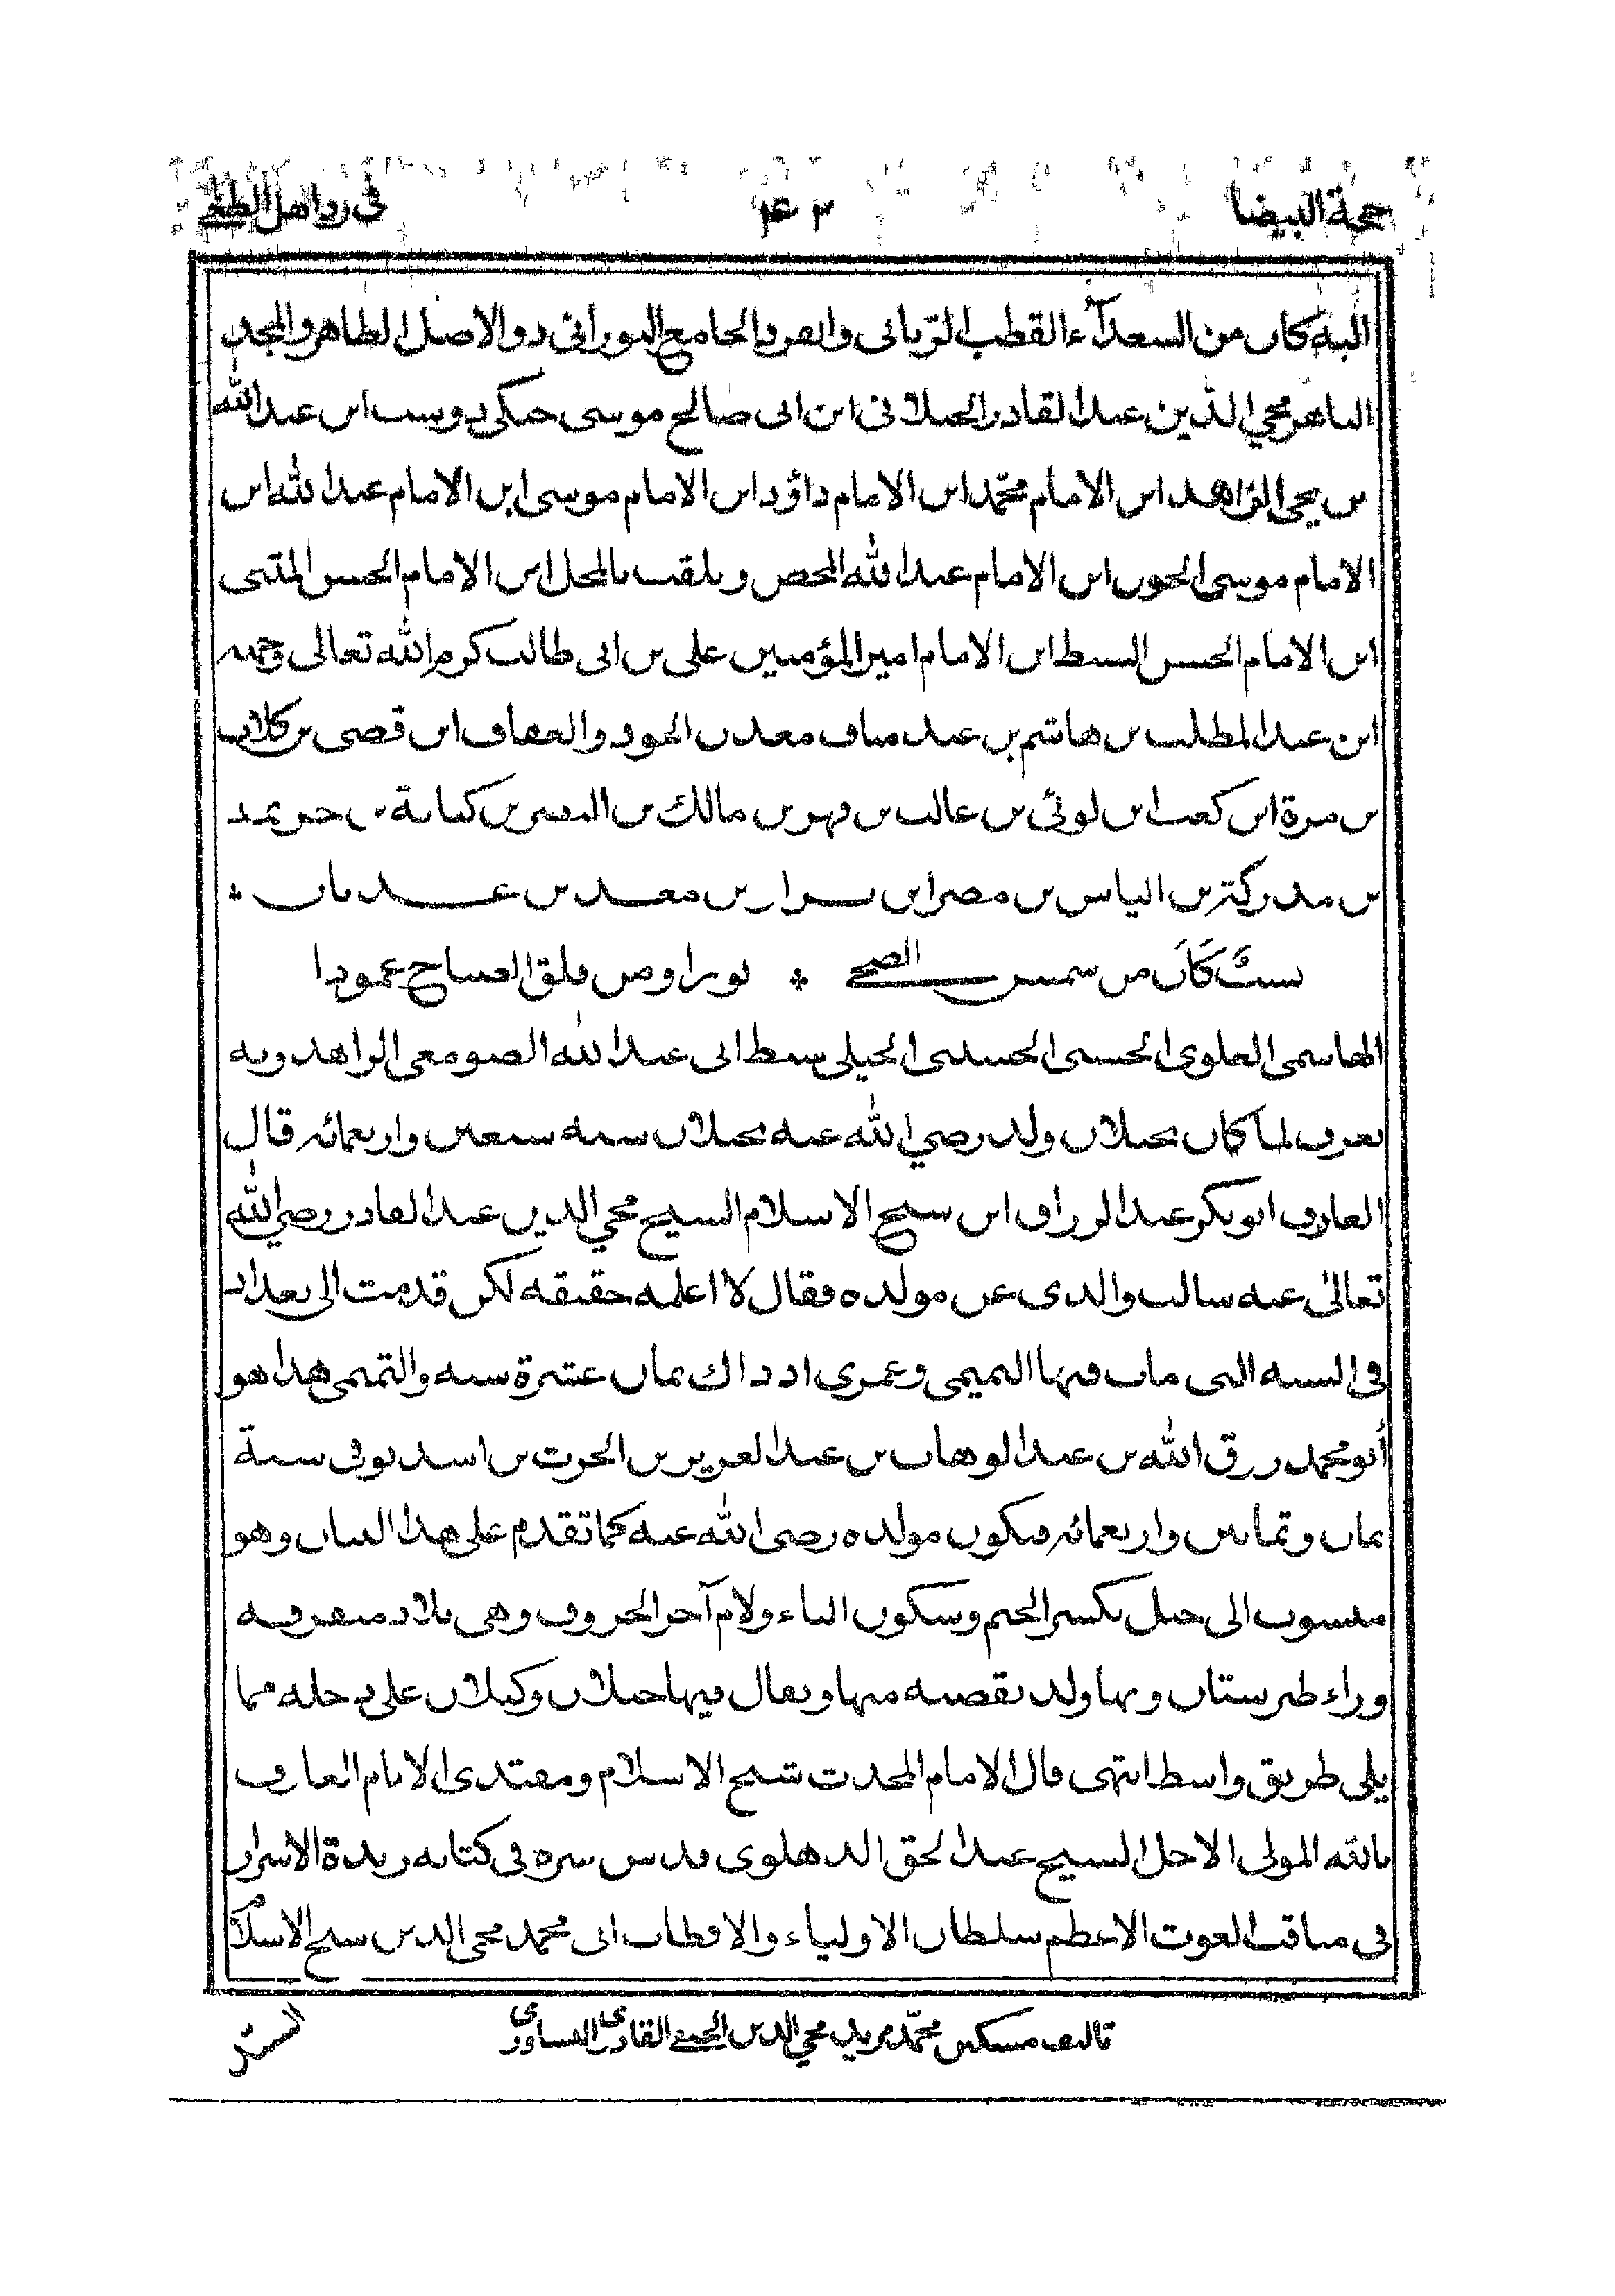 حجة البيضا ٤٣ في رد اهل الطغى
اليه كان من السعدآء القطب الرّبانى والفرد الجامع النورانى ذو الاصل الطاهر والمجد
الباهر محي الدّين عبد القادر الجيلانى ابن ابى صالح موسى جنكى دوست ابن عبد الله
بن يحيى الزاهد ابن الامام محمّد ابن الامام داؤد ابن الامام موسى ابن الامام عبد الله ابن
الامام موسى الجون ابن الامام عبد الله المحض ويلقب بالمجل ابن الامام الحسن المثنى
ابن الامام الحسن السبط ابن الامام امير المؤمنين على بن ابى طالب كرم الله تعالى وجهه
ابن عبد المطلب بن هاشم بن عبد مناف معدن الجود والعفاف ابن قصى بن كلاب
بن مرة ابن كعب ابن لوئى بن غالب بن فهر بن مالك بن النضر بن كنانة بن خزيمة
بن مدركة بن الياس بن مضر ابن نزار بن معد بن عدنان ؞
نسبٌ كَأَن من شمس الضحى ؞ نورا ومن فلق الصباح عمودا
الهاشمى العلوى الحسنى الحسينى الجيلى سبط ابى عبد الله الصومعى الزاهد وبه
يعرف لما كان بجيلان ولد رضي الله عنه بجيلان سنه سبعين واربعمائه قال
العارف ابو بكر عبد الرزاق ابن شيخ الاسلام الشيخ محي الدين عبد القادر رضي الله
تعالى عنه سالت والدى عن مولده فقال لا اعلمه حقيقه لكن قدمت الى بغداد
فى السنه التى مات فيها التميمى وعمرى اذ ذاك ثمان عشرة سنه والتميمى هذا هو
أبو محمد رزق الله بن عبد الوهاب بن عبد العزيز بن الحرث بن اسد توفى سنة
ثمان وثمانين واربعمائه فيكون مولده رضى الله عنه كما تقدم على هذا البيان وهو
منسوب الى جيل بكسر الجيم وسكون الياء ولام آخر الحروف وهى بلاد معروفه
وراء طبرستان وبها ولد بقصبه منها ويقال فيها جيلان وكيلان على دجله مما
يلى طريق واسط انتهى قال الامام المحدث شيخ الاسلام ومقتدى الانام العارف
بالله المولى الاجل الشيخ عبد الحق الدهلوى قدس سره فى كتابه زبدة الاسرار
فى مناقب الغوث الاعظم سلطان الاولياء والاقطاب ابى محمد محى الدين شيخ الاسلام
تاليف مسكين محمّد مريد محي الدين القادرى